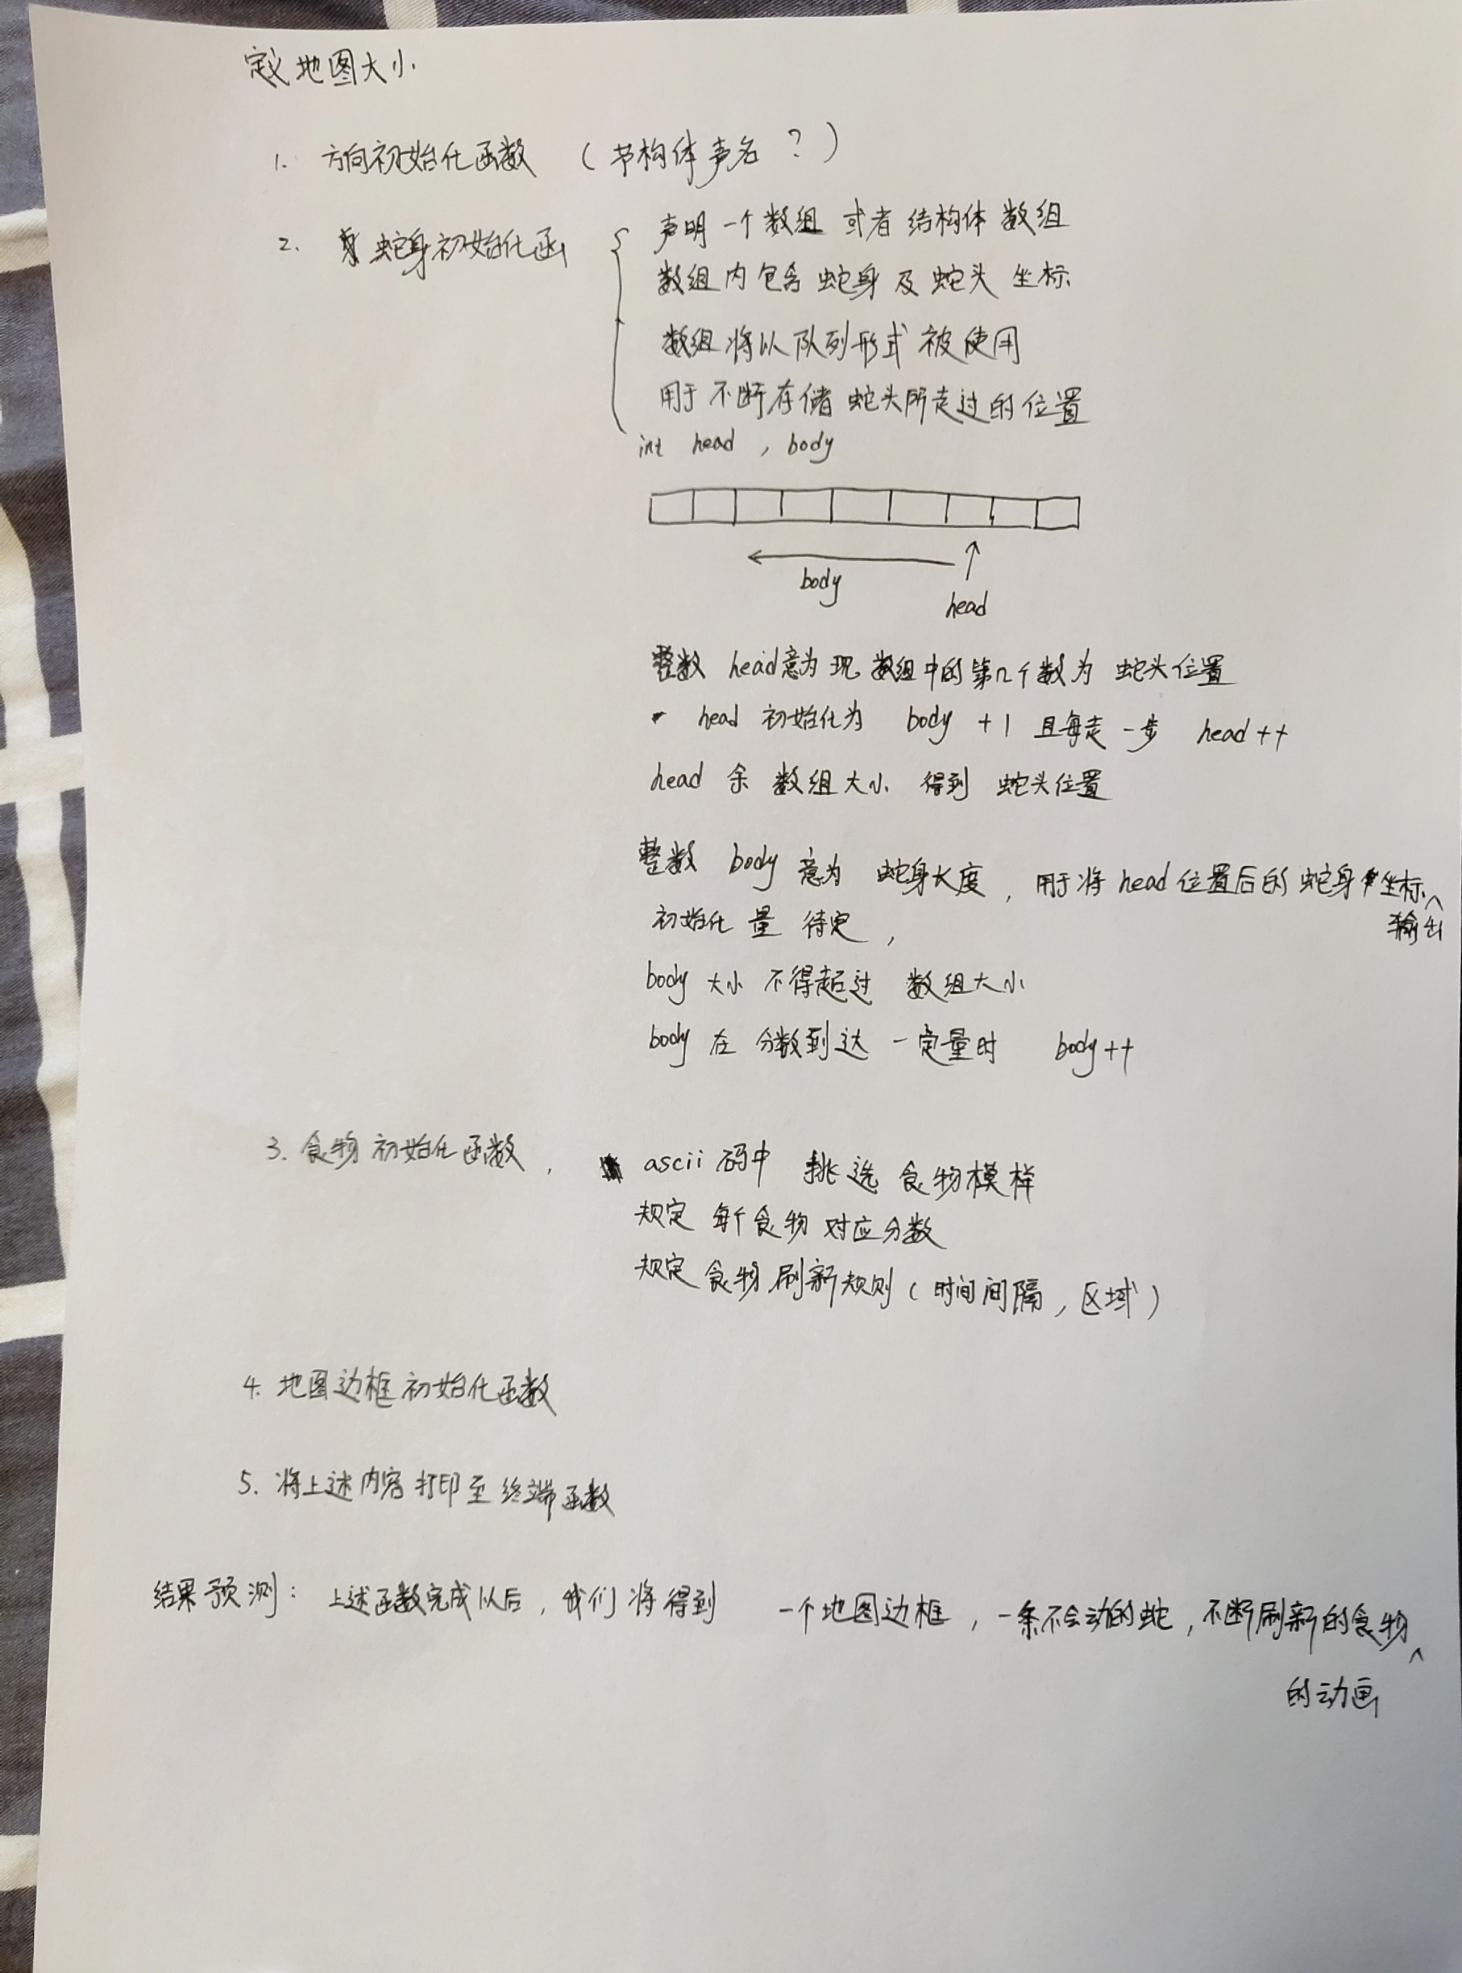 定义地图大小
1. 方向初始化函数 （节构体声名？）
2. 蛇身初始化函 声明一个数组 或者 结构体数组
数组内包含蛇身及蛇头坐标
数组将以队列形式被使用
用于不断存储蛇头所走过的位置
int head , body
body
head
整数 head意为现数组中的第n个数为 蛇头位置
head 初始化为 body +1 且每走一步 head++
head 余 数组大小 得到 蛇头位置
整数 body 意为 蛇身长度，用于将head位置后的蛇身坐标
输出
初始化量 待定，
body 大小 不得超过 数组大小
body 在 分数到达 一定量时 body++
3. 食物初始化函数， ascii码中 挑选 食物模样
规定 每个食物 对应分数
规定 食物刷新规则（时间间隔，区域）
4. 地图边框初始化函数
5. 将上述内容打印至终端函数
结果预测： 上述函数完成以后，我们将得到 一个地图边框，一条不会动的蛇，不断刷新的食物
的动画